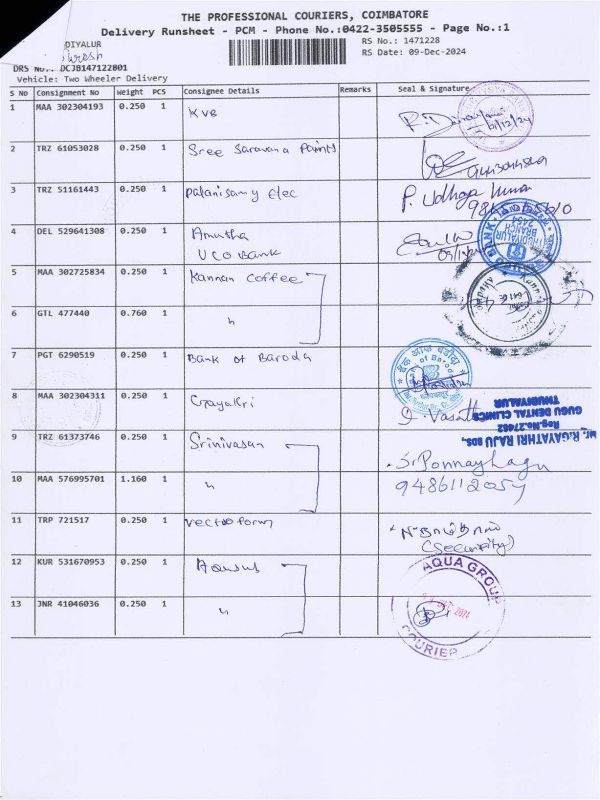 THE PROFESSIONAL COURIERS, COIMBATORE
Delivery Runsheet - PCM - Phone No.:0422-3505555 - Page No.:1
DIYALUR
RS No.: 1471228
RS Date: 09-Dec-2024
DRS No.: DCJB147122801
Vehicle: Two Wheeler Delivery
S No Consignment No Weight PCS Consignee Details Remarks Seal & Signature
1 MAA 302304193 0.250 1 KVB
2 TRZ 61053028 0.250 1 Sree Saravana Paints
3 TRZ 51161443 0.250 1 palanisamy elec
4 DEL 529641308 0.250 1 Amutha
UCO Bank
5 MAA 302725834 0.250 1 Kannan Coffee
6 GTL 477440 0.760 1 "
7 PGT 6290519 0.250 1 Bank of Baroda
8 MAA 302304311 0.250 1 Gayatri
R.GAYATHRI RAJU BDS.,
GUGU DENTAL CLINICS
Reg.No.27462
THUDIYALUR
9 TRZ 61373746 0.250 1 Srinivasan
10 MAA 576995701 1.160 1 "
9486112054
11 TRP 721517 0.250 1 vectoform
(Security)
12 KUR 531670953 0.250 1
AQUA GROUP
13 JNR 41046036 0.250 1 "
2024
COURIER